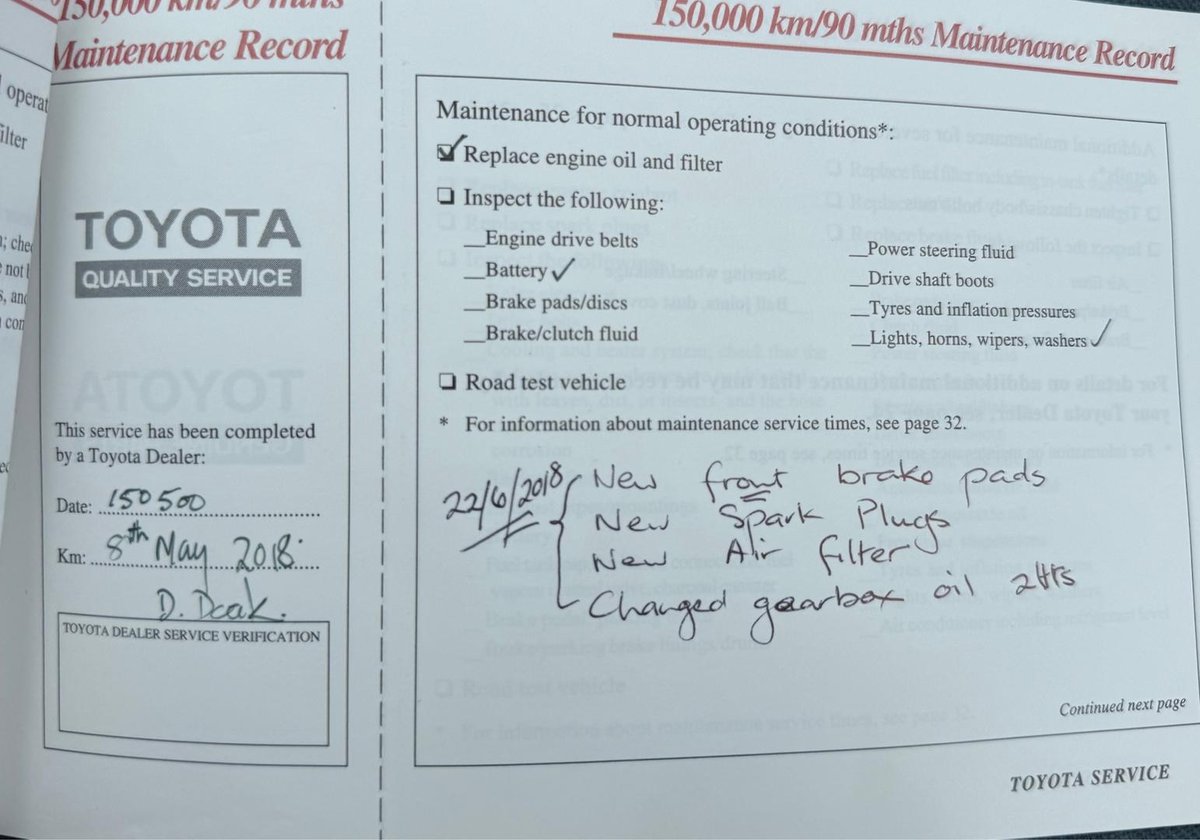 150,000 km/90 mths
Maintenance Record
TOYOTA
QUALITY SERVICE
This service has been completed
by a Toyota Dealer:
Date: 150500
Km: 8th May 2018
D. Deak.
TOYOTA DEALER SERVICE VERIFICATION
150,000 km/90 mths Maintenance Record
Maintenance for normal operating conditions*:
Replace engine oil and filter
Inspect the following:
Engine drive belts
Battery ✓
Brake pads/discs
Brake/clutch fluid
Power steering fluid
Drive shaft boots
Tyres and inflation pressures
Lights, horns, wipers, washers ✓
Road test vehicle
* For information about maintenance service times, see page 32.
22/6/2018
New front brake pads
New Spark Plugs
New Air filter
Changed gearbox oil 2ltrs
Continued next page
TOYOTA SERVICE